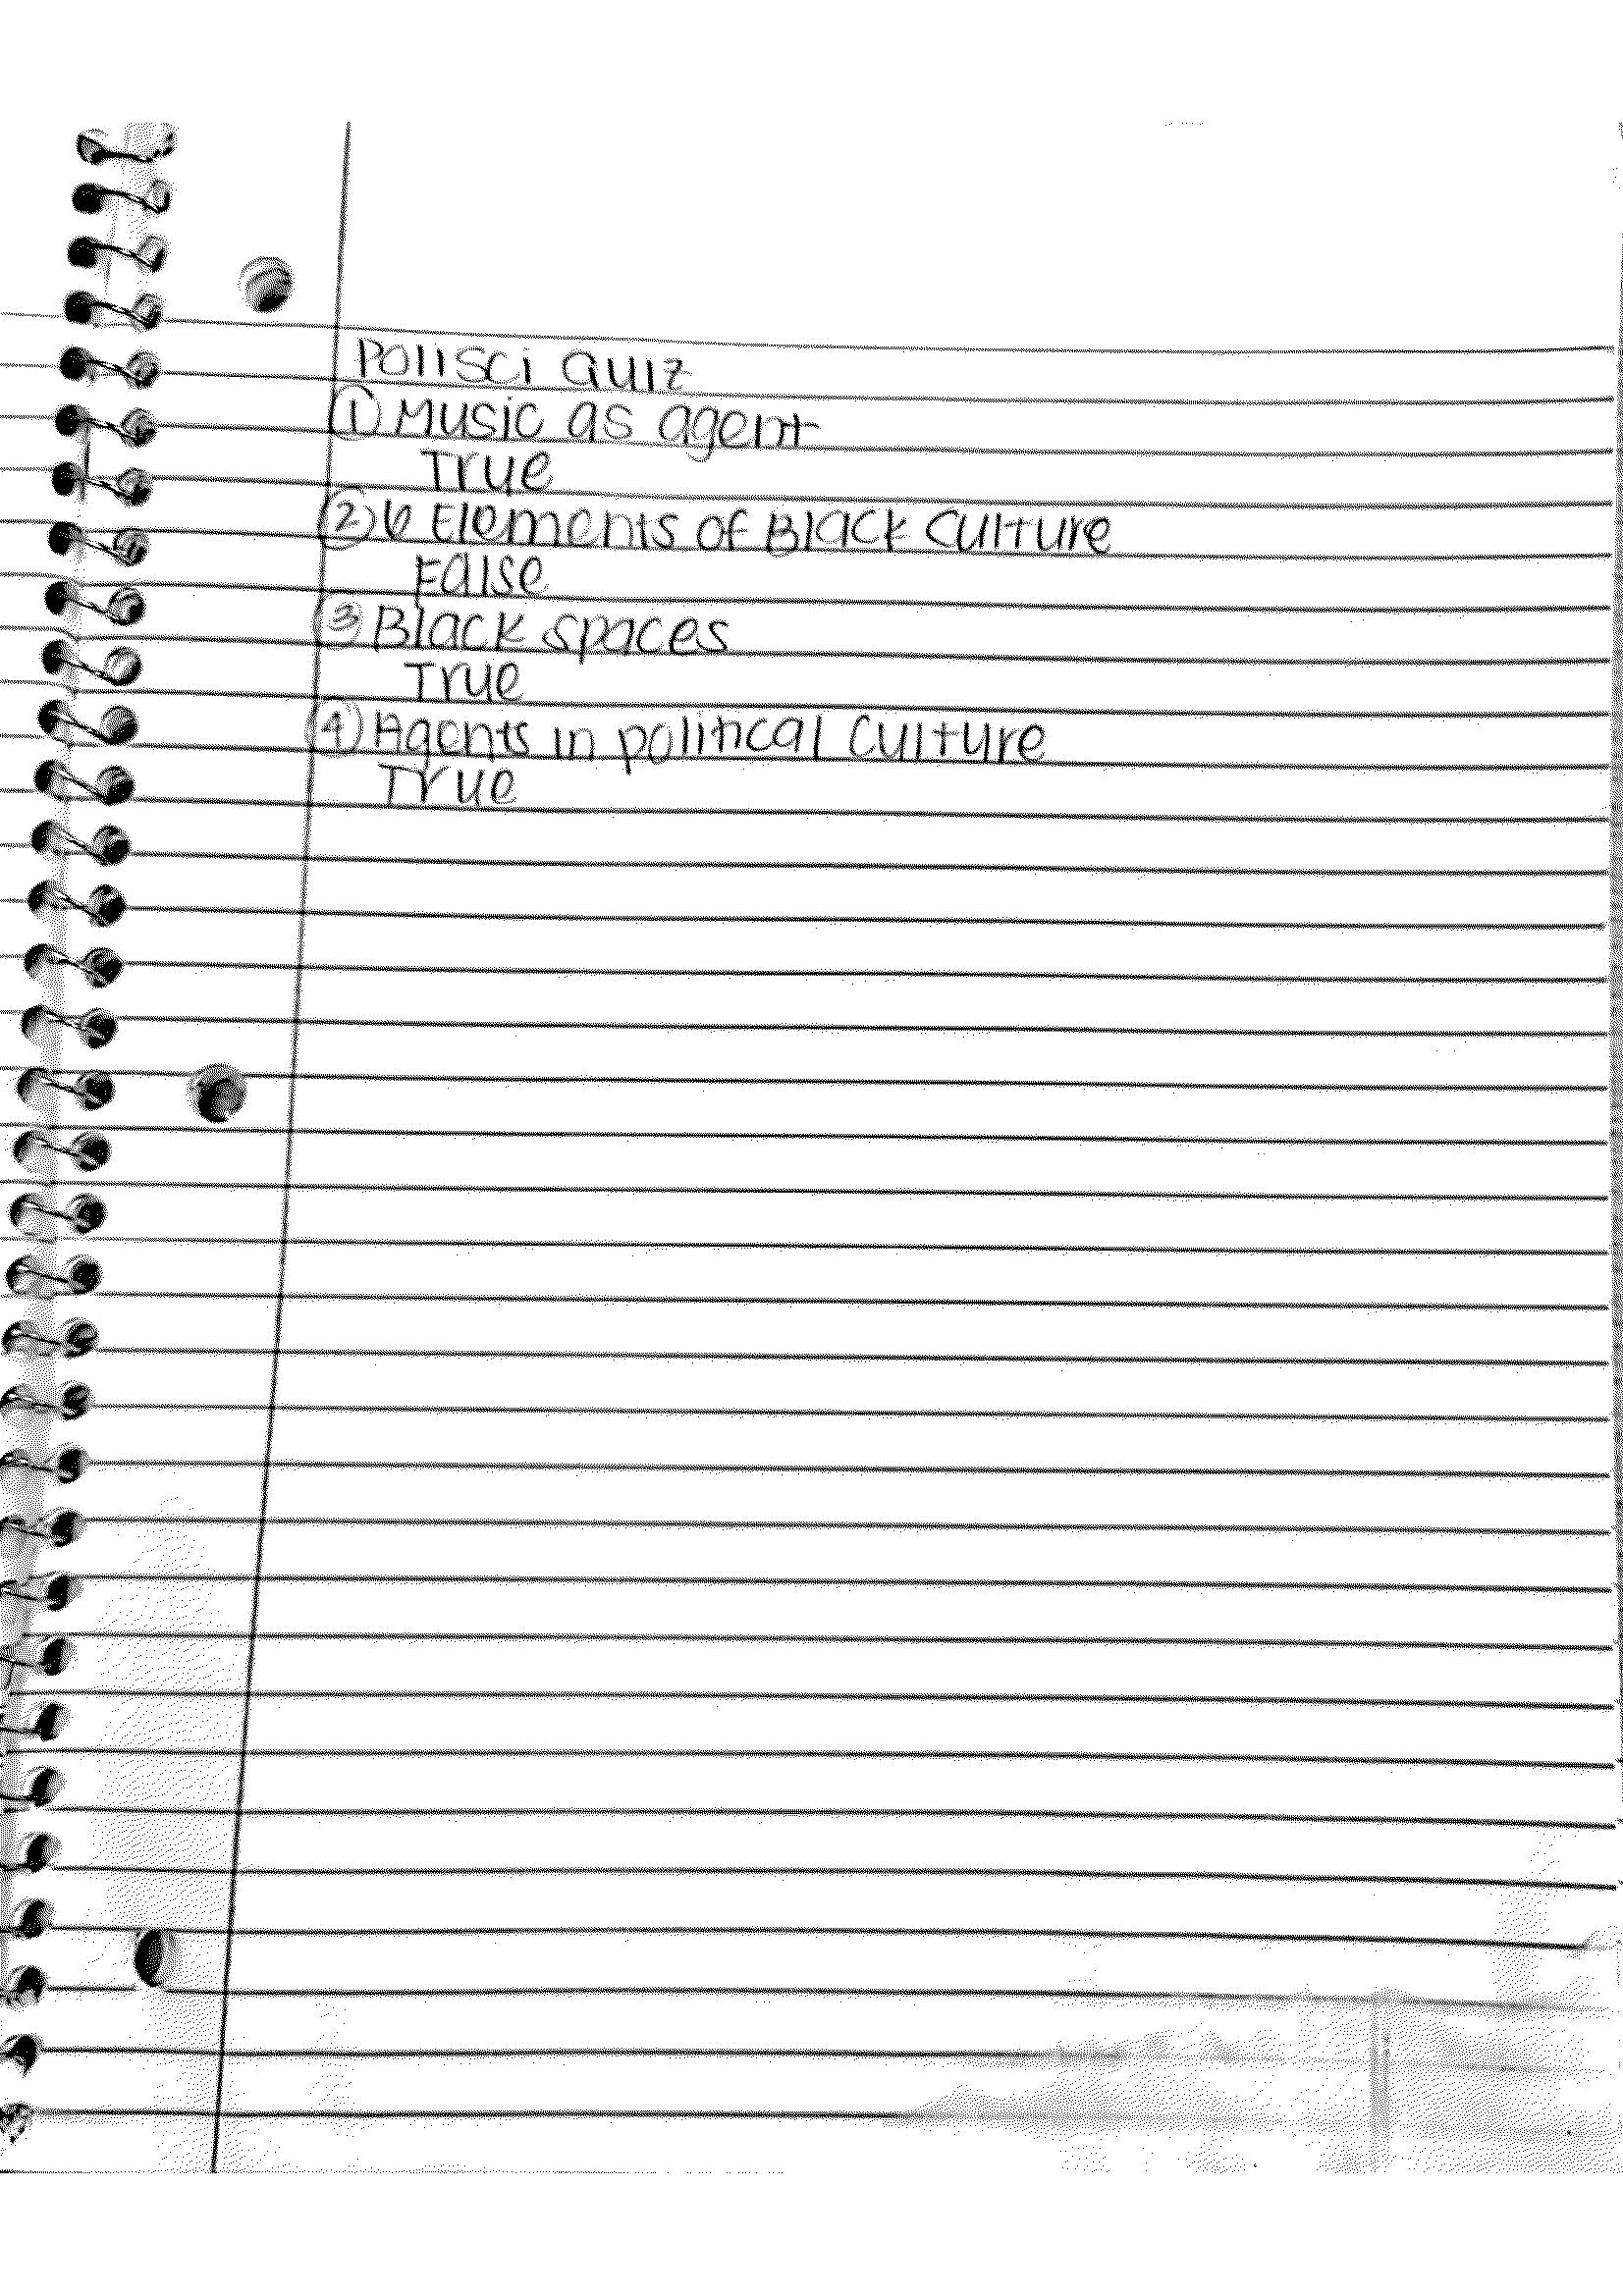 Polisci Quiz
① Music as agent
True
② 6 Elements of Black Culture
False
③ Black spaces
True
④ Agents in political culture
True